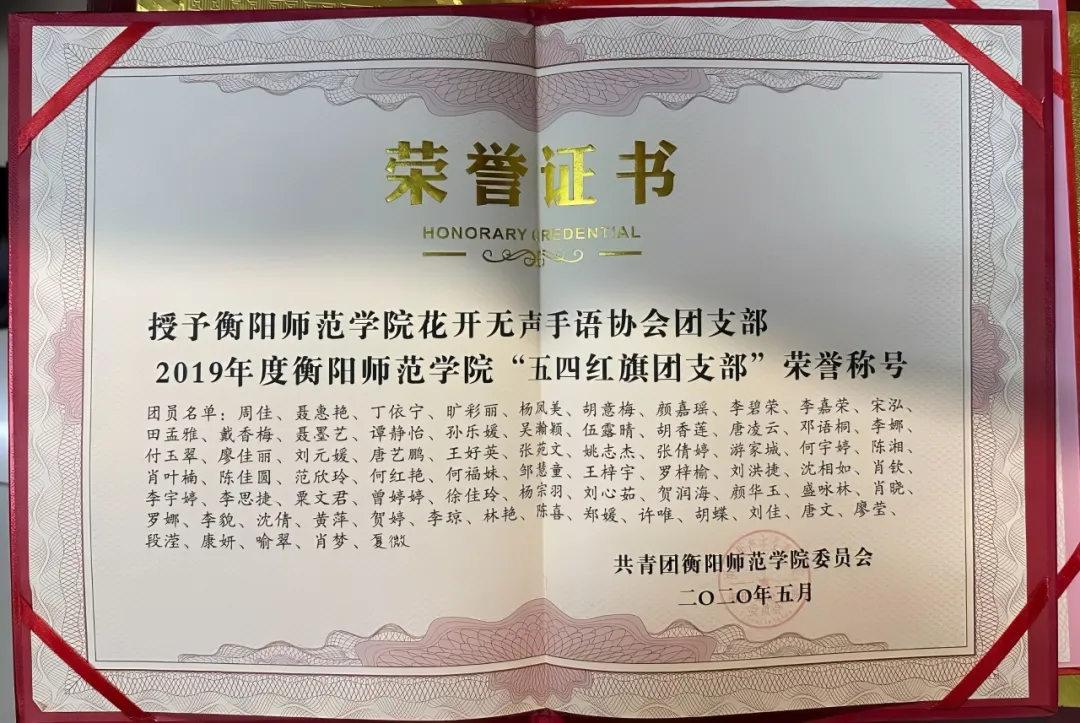 荣誉证书
HONORARY CREDENTIAL
授予衡阳师范学院花开无声手语协会团支部
2019年度衡阳师范学院“五四红旗团支部”荣誉称号
团员名单：周佳、聂惠艳、丁依宁、旷彩丽、杨凤美、胡意梅、颜嘉瑶、李碧荣、李嘉荣、宋泓、
田孟雅、戴香梅、聂墨艺、谭静怡、孙乐媛、吴瀚颖、伍露晴、胡香莲、唐凌云、邓语桐、李娜、
付玉翠、廖佳丽、刘元媛、唐艺鹏、王好英、张苑文、姚志杰、张倩婷、游家城、何宇婷、陈湘、
肖叶楠、陈佳圆、范欣玲、何红艳、何福妹、邹慧童、王梓宇、罗梓榆、刘洪捷、沈相如、肖钦、
李宇婷、李思捷、粟文君、曾婷婷、徐佳玲、杨宗羽、刘心茹、贺润海、颜华玉、盛咏林、肖晓、
罗娜、李貌、沈倩、黄萍、贺婷、李琼、林艳、陈喜、郑媛、许唯、胡蝶、刘佳、唐文、廖莹、
段滢、康妍、喻翠、肖梦、夏微
共青团衡阳师范学院委员会
二〇二〇年五月